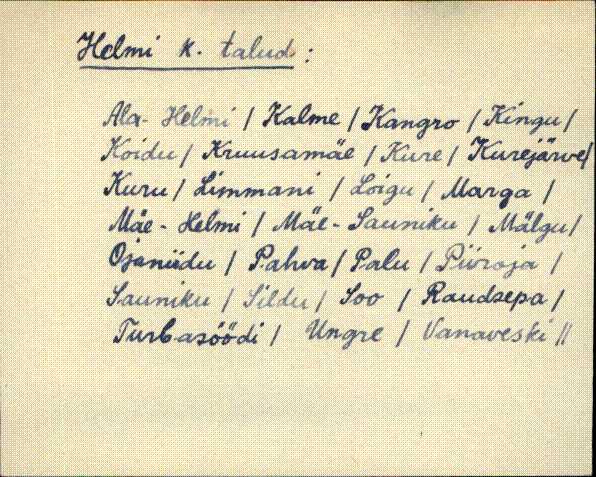 Helmi k. talud :
Ala-Helmi / Kalme / Kangro / Kingu /
Koidu / Kruusamäe / Kure / Kurejärve /
Kuru / Limmani / Loigu / Marga /
Mäe-Helmi / Mäe-Sauniku / Mälgu /
Ojaniidu / Pahva / Palu / Piiroja /
Sauniku / Sildu / Soo / Raudsepa /
Turbasöödi / Ungre / Vanaveski //